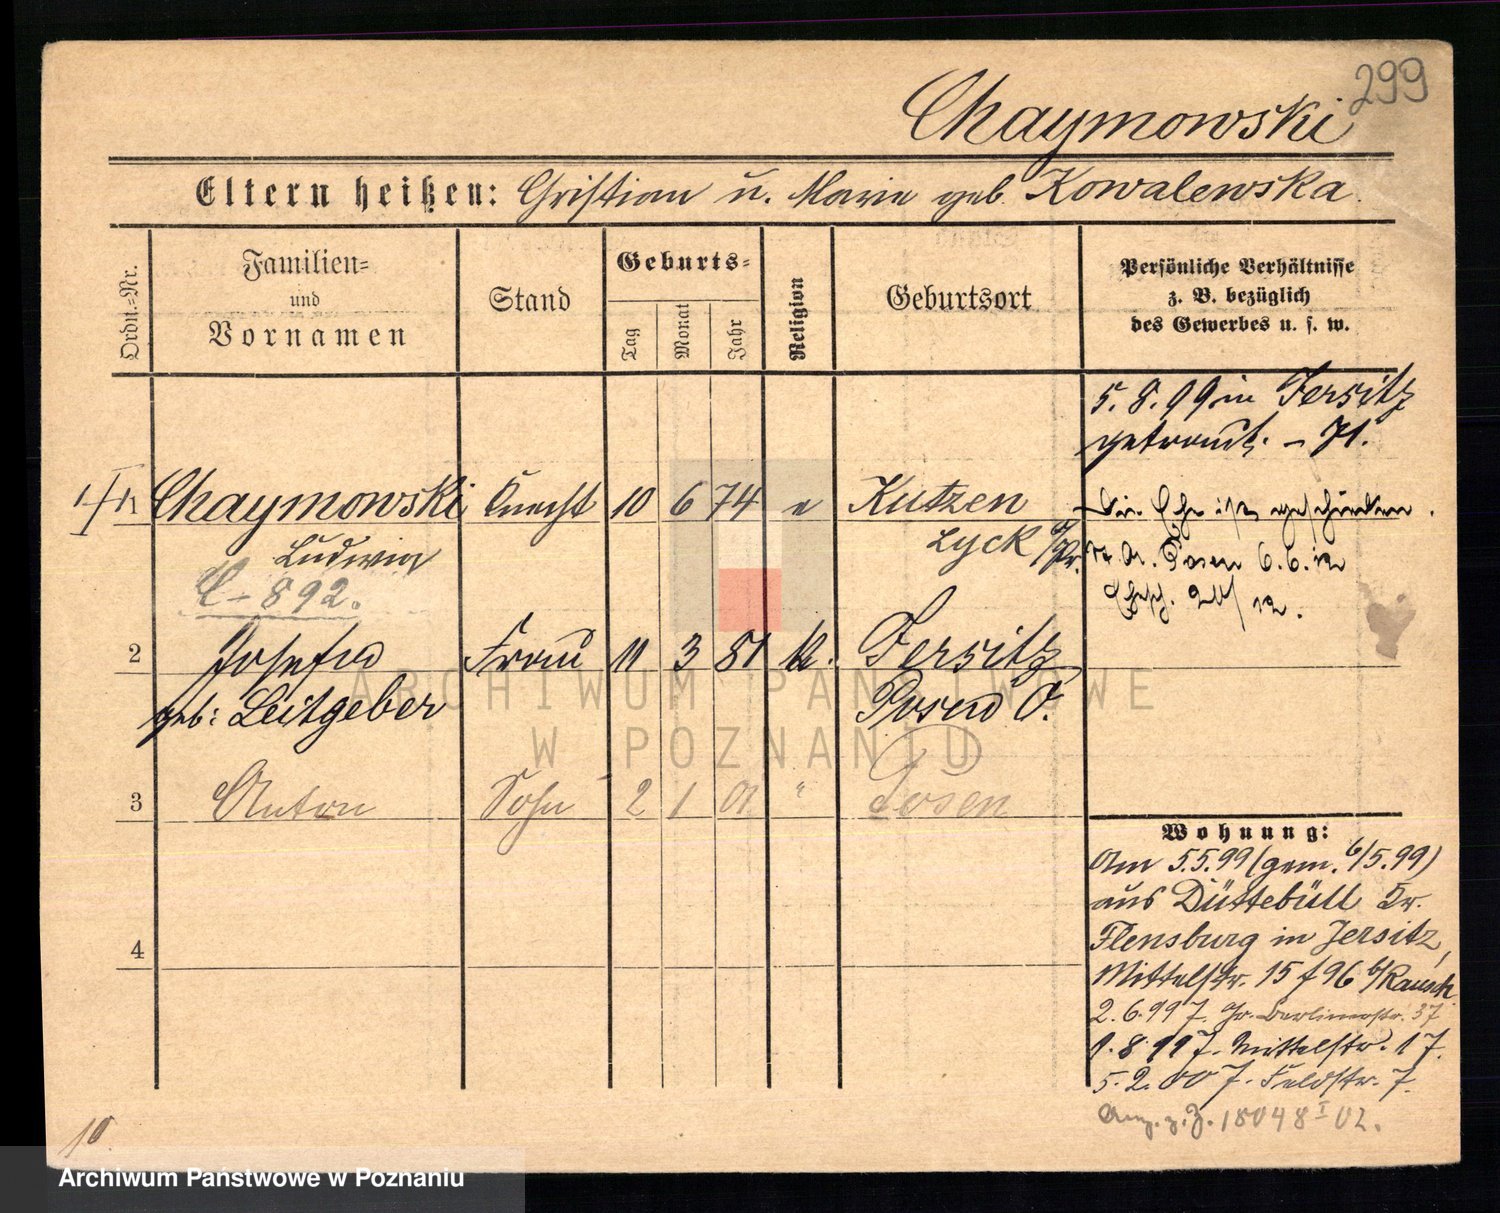 299
Chaymowski
Eltern heißen: Christian u. Marie geb. Kowalewska.
Ordn.-Nr.
Familien- und Vornamen
Stand
Geburts-
Tag
Monat
Jahr
Religion
Geburtsort
Persönliche Verhältnisse
z. B. bezüglich
des Gewerbes u. s. w.
5. 8. 99 in Jersitz
getraut. - 71.
Chaymowski Knecht 10 6 74 e Kutzen
Ludwig Lyck O/Pr.
C - 892.
Die Ehe ist geschieden.
Posen 6. 6. 12
12.
2 Josefa Frau 11 3 81 k. Jersitz
geb: Leitgeber Posen O.
3 Anton Sohn 2 1 01 " Posen
4
Wohnung:
Am 5.5.99 (gem. 6/5.99)
aus Düttebüll Kr.
Flensburg in Jersitz,
Mittelstr. 15 f 96 b/Rausch
2. 6. 99 J. Gr. Berlinerstr. 37
1. 8 99 J. Mittelstr. 17.
5. 2. 00 J. Feldstr. 7.
Anz. z. Z. 18048 I 02.
10.
ARCHIWUM PAŃSTWOWE
W POZNANIU
Archiwum Państwowe w Poznaniu